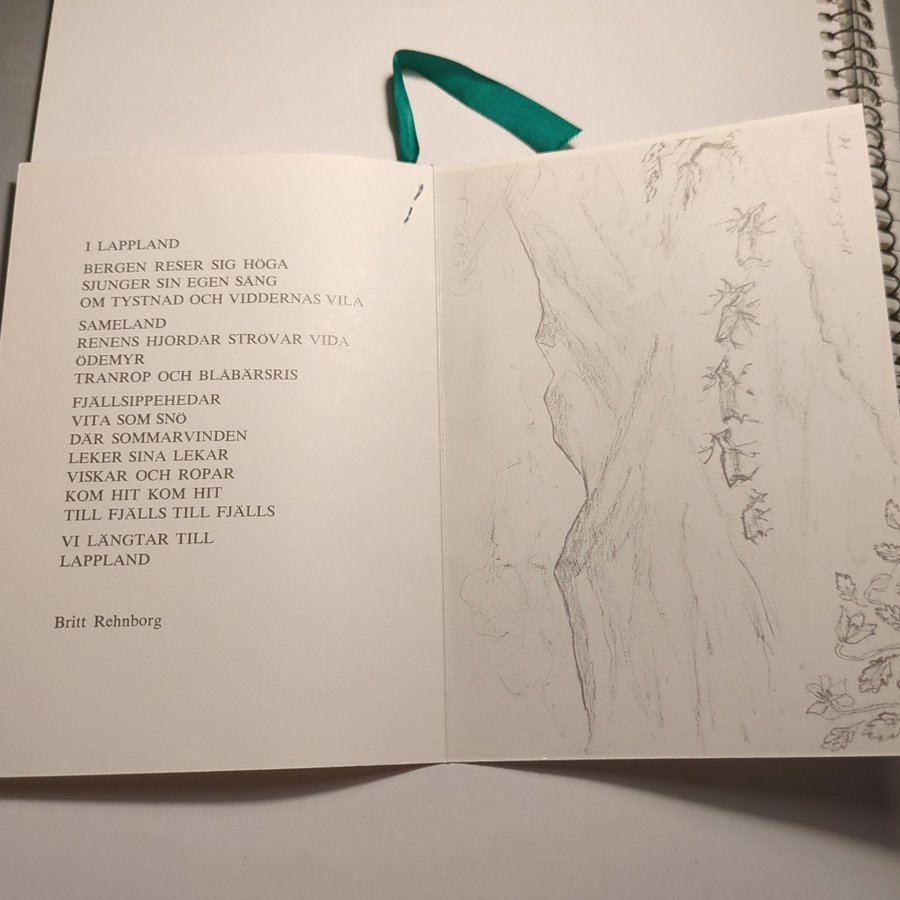 I LAPPLAND
BERGEN RESER SIG HÖGA
SJUNGER SIN EGEN SÅNG
OM TYSTNAD OCH VIDDERNAS VILA
SAMELAND
RENENS HJORDAR STRÖVAR VIDA
ÖDEMYR
TRANROP OCH BLÅBÄRSRIS
FJÄLLSIPPEHEDAR
VITA SOM SNÖ
DÄR SOMMARVINDEN
LEKER SINA LEKAR
VISKAR OCH ROPAR
KOM HIT KOM HIT
TILL FJÄLLS TILL FJÄLLS
VI LÄNGTAR TILL
LAPPLAND
Britt Rehnborg